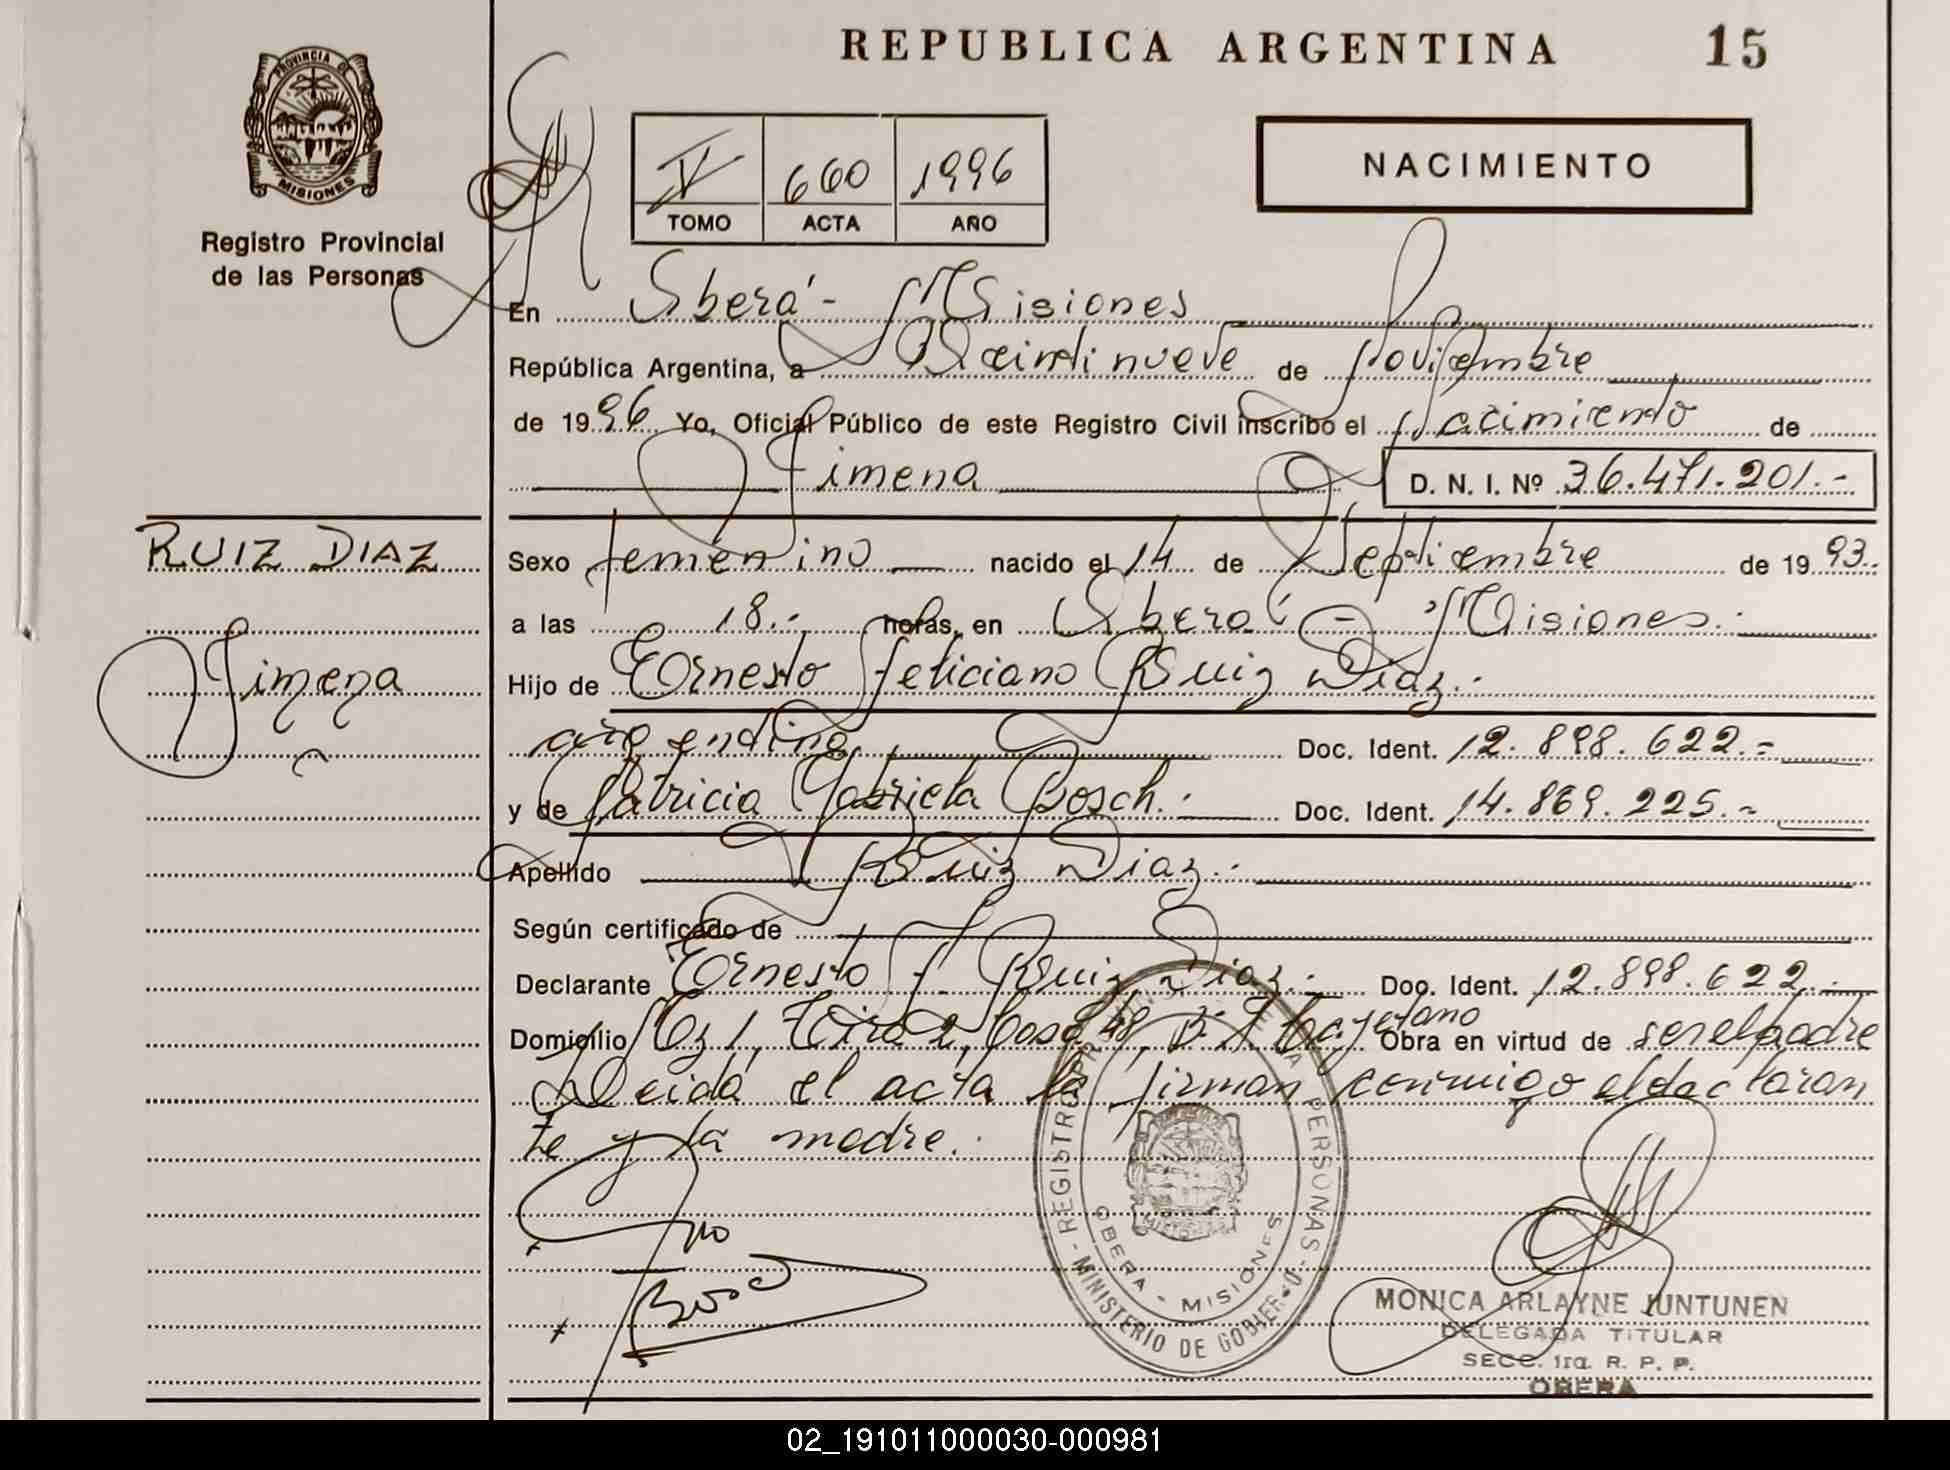 REPUBLICA ARGENTINA 15
PROVINCIA DE
MISIONES
Registro Provincial
de las Personas
V 660 1996
TOMO ACTA AÑO
NACIMIENTO
En Oberá - Misiones
República Argentina, a Veintinueve de Noviembre
de 1996 Yo, Oficial Público de este Registro Civil inscribo el Nacimiento de
Jimena D. N. I. Nº 36.471.201.-
RUIZ DIAZ
Jimena
Sexo femenino nacido el 14 de Septiembre de 1993.
a las 18.- horas, en Oberá - Misiones.
Hijo de Ernesto Feliciano Ruiz Diaz.-
argentino Doc. Ident. 12.898.622.=
y de Patricia Gabriela Bosch.- Doc. Ident. 14.869.225.=
Apellido Ruiz Diaz.-
Según certificado de
Declarante Ernesto F. Ruiz Diaz.- Doc. Ident. 12.898.622.-
Domicilio Mz 1, Tira 2, Casa 48, Bº Obra en virtud de ser el padre
Leida el acta la firman conmigo el declaran
te y la madre.
Bosch
REGISTRO PROVINCIAL DE LAS PERSONAS
MINISTERIO DE GOBIERNO
OBERA - MISIONES
MONICA ARLAYNE JUNTUNEN
DELEGADA TITULAR
SECC. 1ra. R. P. P.
OBERA
02_191011000030-000981